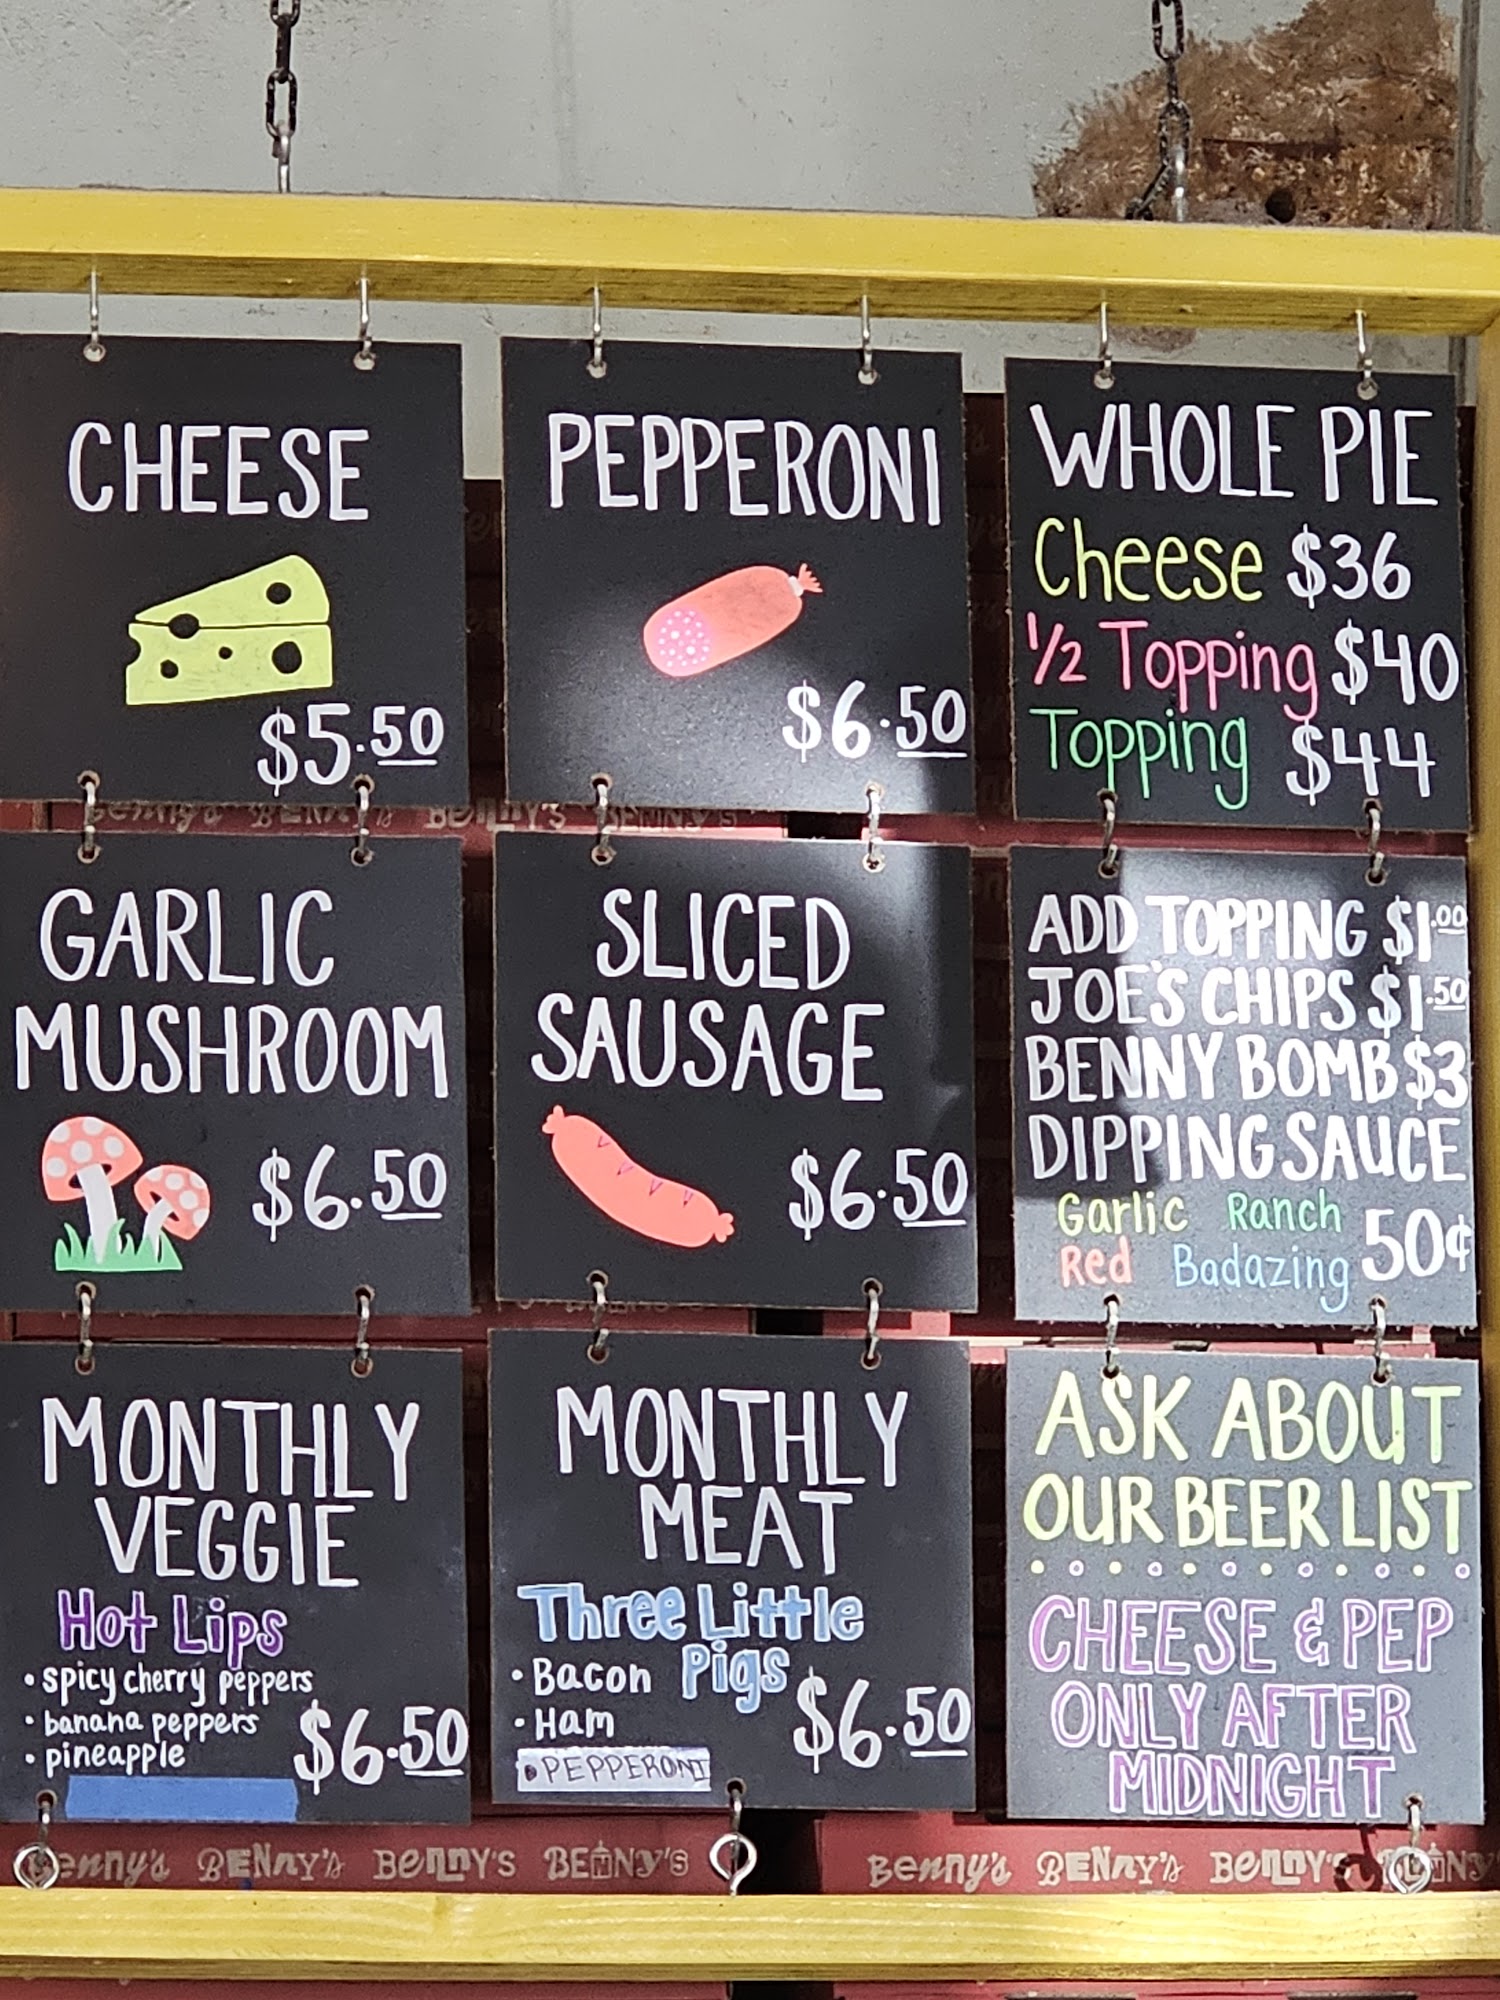 CHEESE
$5.50
PEPPERONI
$6.50
WHOLE PIE
Cheese $36
1/2 Topping $40
Topping $44
GARLIC
MUSHROOM
$6.50
SLICED
SAUSAGE
$6.50
ADD TOPPING $1.00
JOE'S CHIPS $1.50
BENNY BOMB $3
DIPPING SAUCE
Garlic Ranch
Red Badazing
50¢
MONTHLY
VEGGIE
Hot Lips
• spicy cherry peppers
• banana peppers
• pineapple
$6.50
MONTHLY
MEAT
Three Little
Pigs
• Bacon
• Ham
• PEPPERONI
$6.50
ASK ABOUT
OUR BEER LIST
CHEESE & PEP
ONLY AFTER
MIDNIGHT
Benny's BENNY'S BENNY'S BENNY'S
Benny's BENNY'S BENNY'S